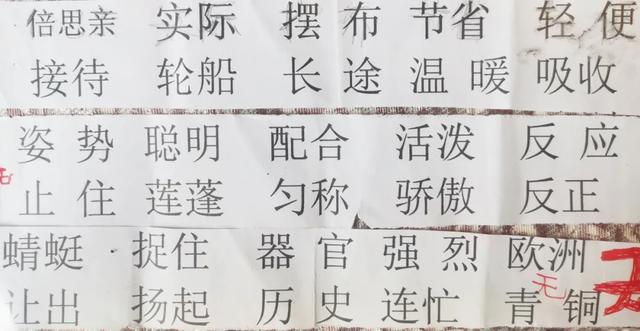 倍思亲 实际 摆布 节省 轻便
接待 轮船 长途 温暖 吸收
姿势 聪明 配合 活泼 反应
止住 莲蓬 匀称 骄傲 反正
蜻蜓 捉住 器官 强烈 欧洲
无
让出 扬起 历史 连忙 青铜